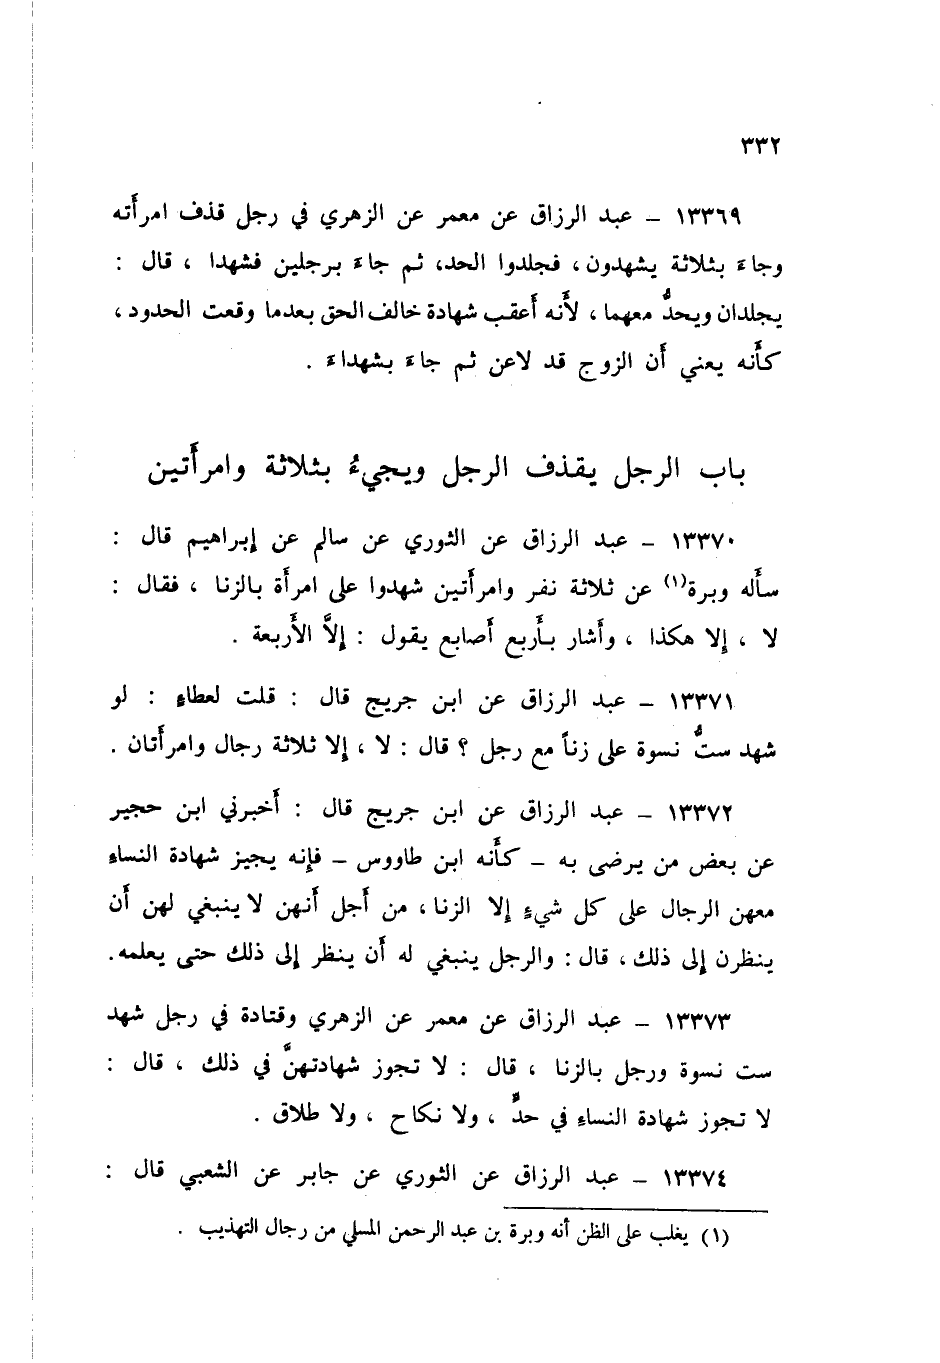 ٣٣٢
١٣٣٦٩ – عبد الرزاق عن معمر عن الزهري في رجل قذف امرأَته
وجاءَ بثلاثة يشهدون، فجلدوا الحد، ثم جاءَ برجلين فشهدا ، قال :
يجلدان ويحدُّ معهما ، لأَنه أَعقب شهادة خالف الحق بعدما وقعت الحدود ،
كأَنه يعني أَن الزوج قد لاعن ثم جاءَ بشهداءَ .
باب الرجل يقذف الرجل ويجيءُ بثلاثة وامرأَتين
١٣٣٧٠ – عبد الرزاق عن الثوري عن سالم عن إبراهيم قال :
سأَله وبرة(١) عن ثلاثة نفر وامرأَتين شهدوا على امرأَة بالزنا ، فقال :
لا ، إلا هكذا ، وأَشار بأَربع أَصابع يقول : إلاَّ الأَربعة .
١٣٣٧١ – عبد الرزاق عن ابن جريج قال : قلت لعطاءٍ : لو
شهد ستُّ نسوة على زناً مع رجل ؟ قال : لا ، إلا ثلاثة رجال وامرأَتان .
١٣٣٧٢ – عبد الرزاق عن ابن جريج قال : أَخبرني ابن حجير
عن بعض من يرضى به – كأَنه ابن طاووس – فإنه يجيز شهادة النساءِ
معهن الرجال على كل شيءٍ إلا الزنا ، من أَجل أَنهن لا ينبغي لهن أَن
ينظرن إلى ذلك ، قال : والرجل ينبغي له أَن ينظر إلى ذلك حتى يعلمه.
١٣٣٧٣ – عبد الرزاق عن معمر عن الزهري وقتادة في رجل شهد
ست نسوة ورجل بالزنا ، قال : لا تجوز شهادتهنَّ في ذلك ، قال :
لا تجوز شهادة النساءِ في حدٍّ ، ولا نكاح ، ولا طلاق .
١٣٣٧٤ – عبد الرزاق عن الثوري عن جابر عن الشعبي قال :
(١) يغلب على الظن أنه وبرة بن عبد الرحمن المسلي من رجال التهذيب .